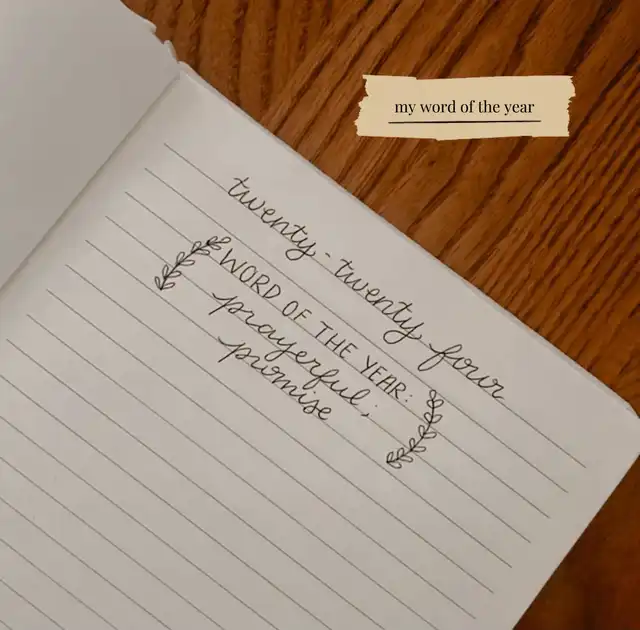 my word of the year
twenty-twenty four
WORD OF THE YEAR:
prayerful;
promise